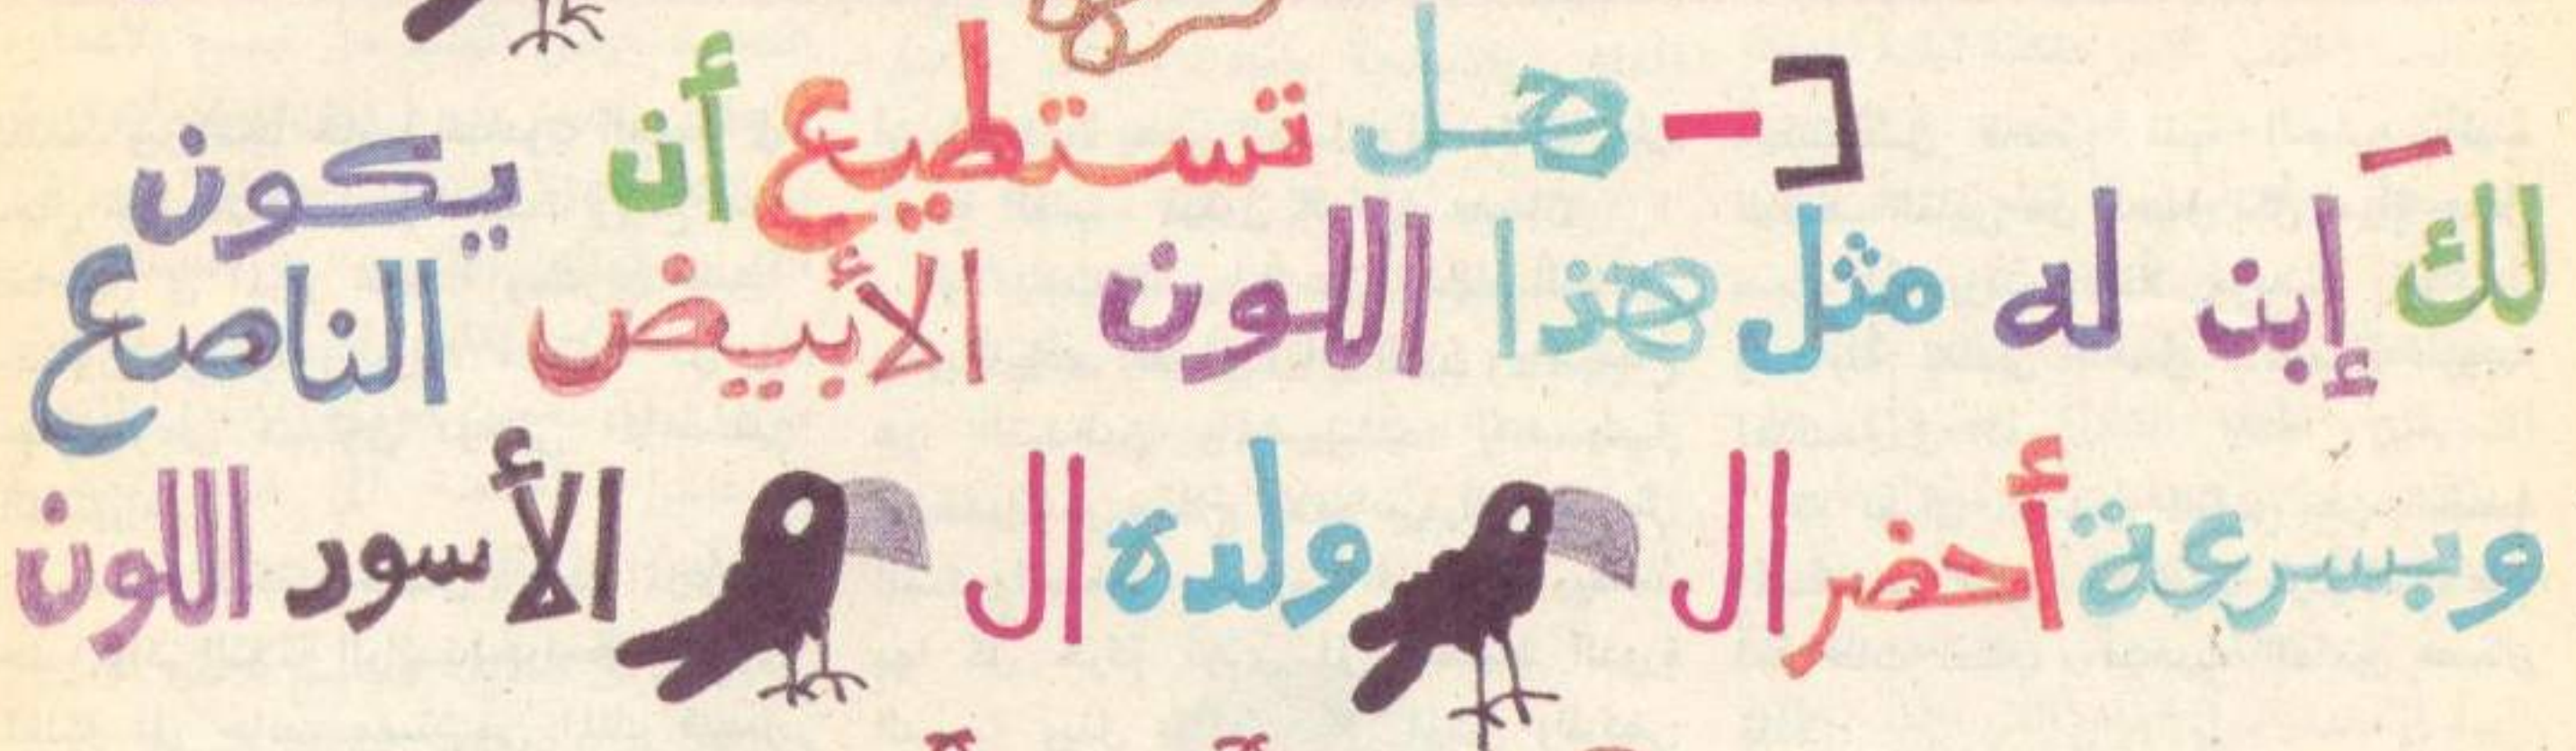 [ - هل تستطيع أن يكون
لك إبن له مثل هذا اللون الأبيض الناصع
وبسرعة أحضر ال ولده ال الأسود اللون